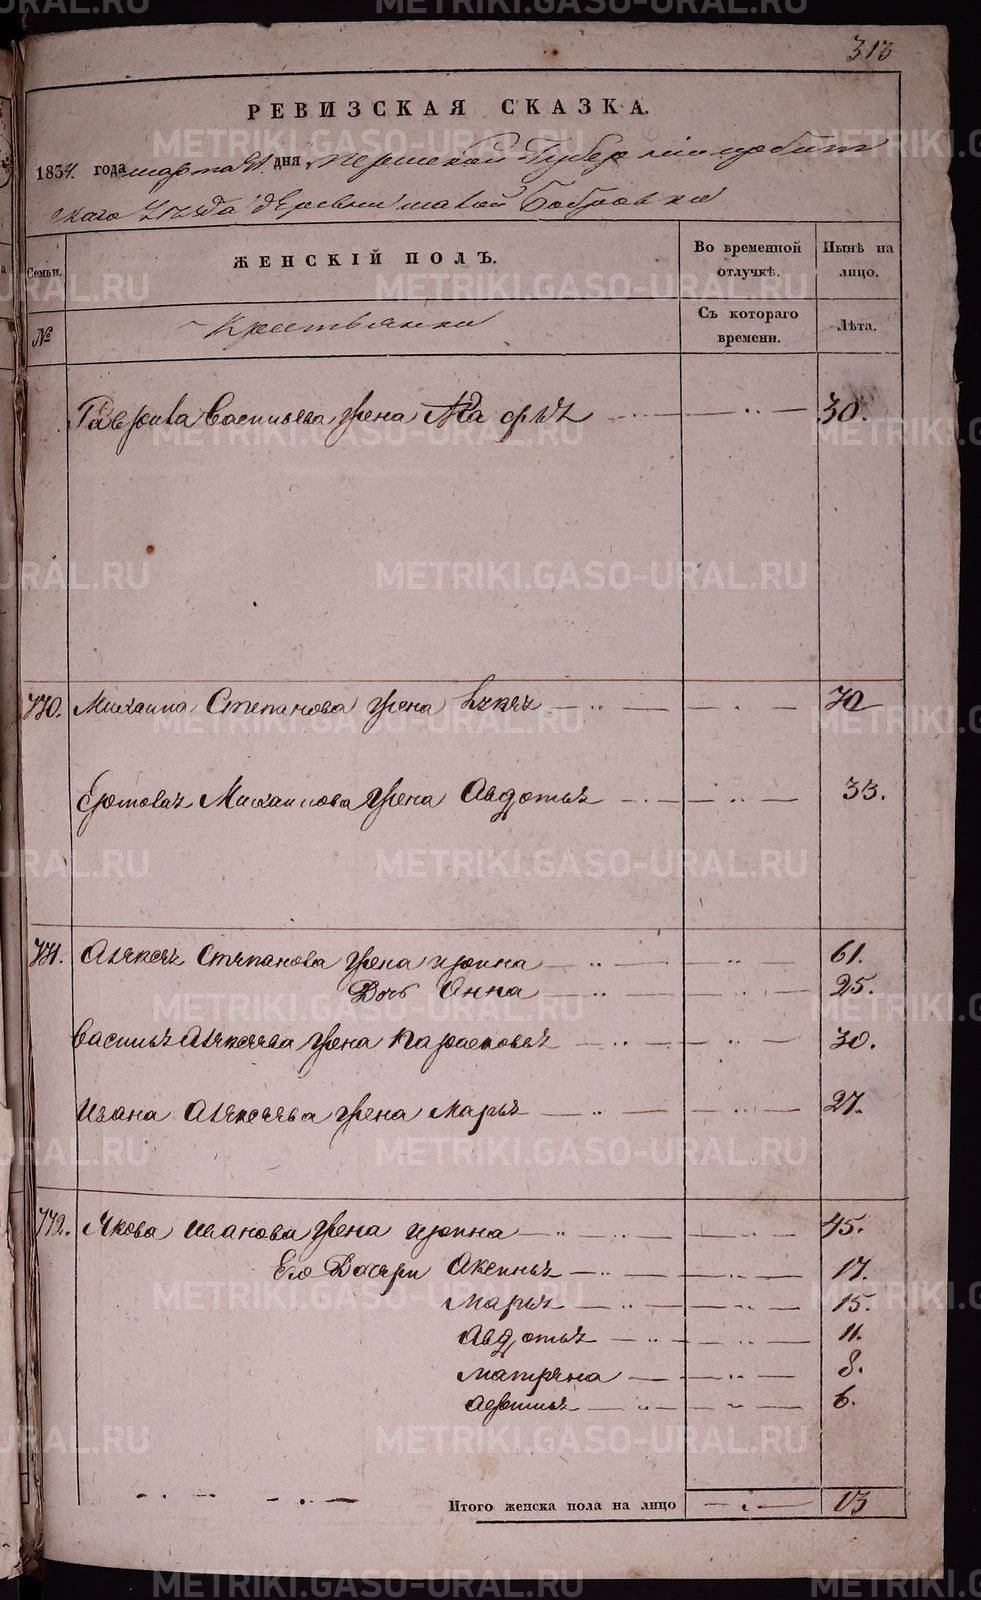 313
РЕВИЗСКАЯ СКАЗКА.
1834. года марта дня, Пермской Губер нии
скаго уезда деревни малой Бобровки
Семьи. ЖЕНСКІЙ ПОЛЪ. Во временной отлучкѣ. Нынѣ на лицо.
№ Крестьянки Съ котораго времени. Лѣта.
Гаврила Васильева жена 30.
770. Михаила Степанова жена Лукея 70
Михаилова жена Авдотья 33.
771. Алексея Степанова жена ирина 61.
Дочь Анна 25.
Василья Алексеева жена Парасковья 30.
Ивана Алексеева жена Марья 27.
772. Якова Иванова жена ирина 45.
Его Дочери Аксинья 17.
Марья 15.
Авдотья 11.
матрена 8.
6.
Итого женска пола на лицо 13
METRIKI.GASO-URAL.RU